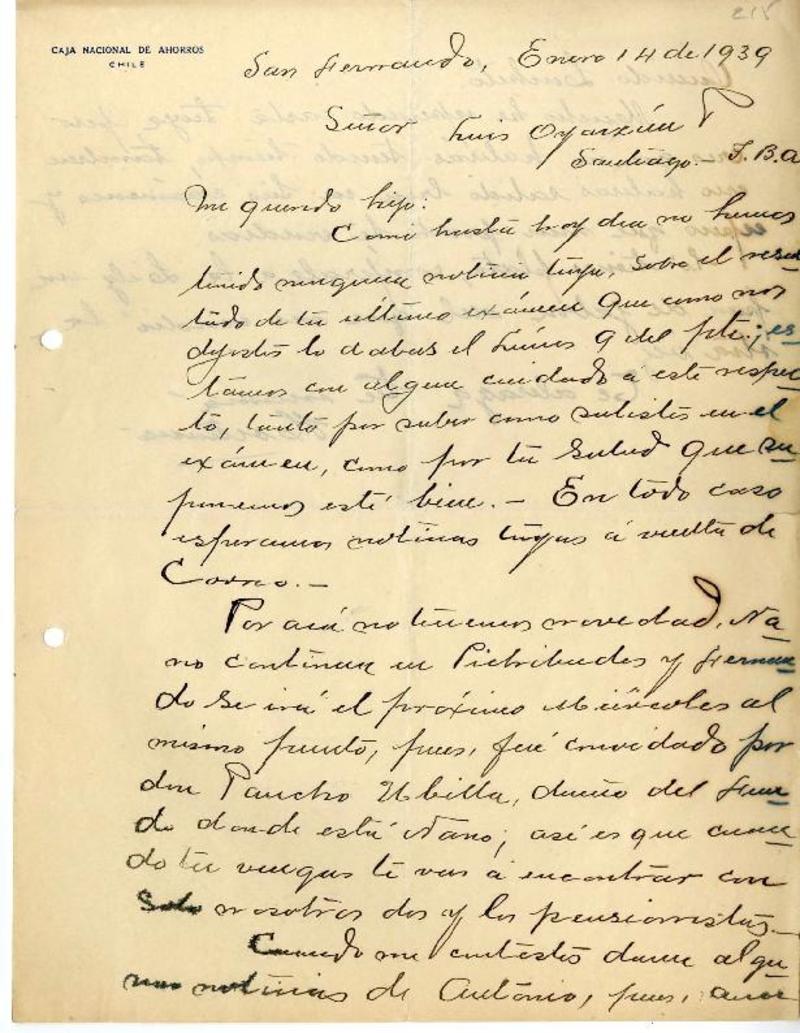 215
CAJA NACIONAL DE AHORROS
CHILE
San Fernando, Enero 14 de 1939
Señor Luis Oyarzún P
Santiago.- I.B.A
Mi querido hijo:
Como hasta hoy dia no hemos
tenido ninguna noticia tuya, sobre el resul
tado de tu último exámen que como nos
dijistes lo dabas el Lúnes 9 del pte.; es
támos con algun cuidado á este respec
to, tanto por saber como salistes en el
exámen, como por tu salud que su
ponemos esté bien.- En todo caso
esperamos noticias tuyas á vuelta de
Correo.-
Por acá no tenemos novedad, Na
no continua en Pichibudes y Fernan
do se irá el próximo Miércoles al
mismo punto, pues, fué convidado por
don Pancho Ubilla, dueño del fun
do donde está Nano; así es que cuan
do tu vengas te vas á encontrar con
Solo nosotros dos y los pensionistas.-
Cuando me contestes dame algu
nas noticias de António, pues,